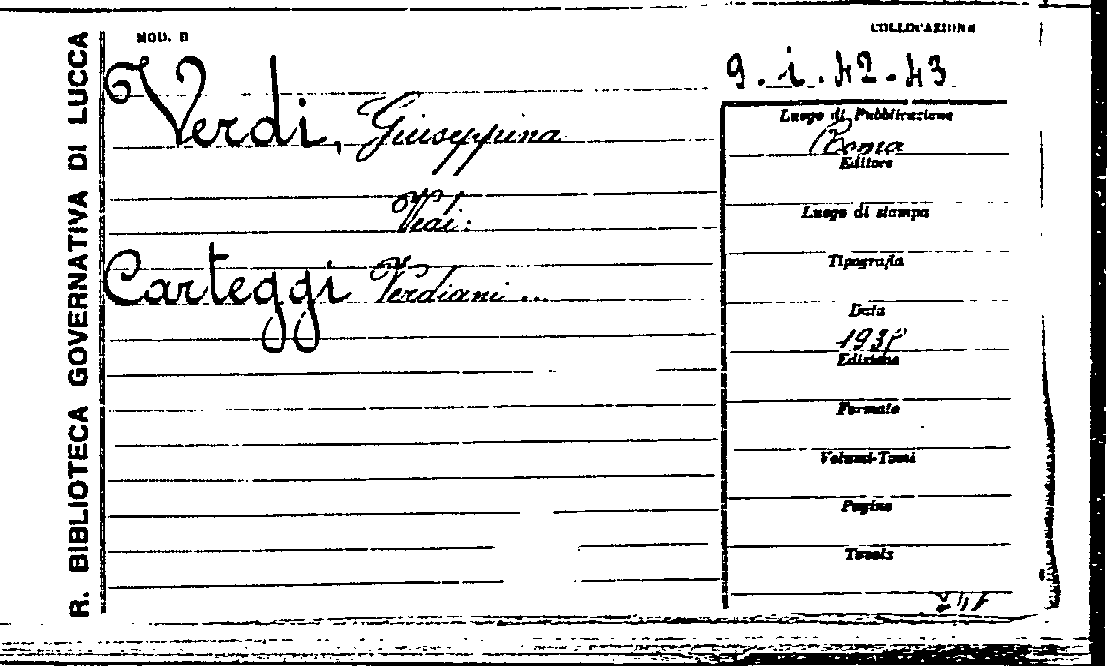 R. BIBLIOTECA GOVERNATIVA DI LUCCA
MOD. B
COLLOCAZIONE
9.i.42-43
Verdi, Giuseppina
Vedi:
Carteggi Verdiani ...
Luogo di Pubblicazione
Roma
Editore
Luogo di stampa
Tipografia
Data
Edizione
Formato
Volumi-Tomi
Pagine
Tavole